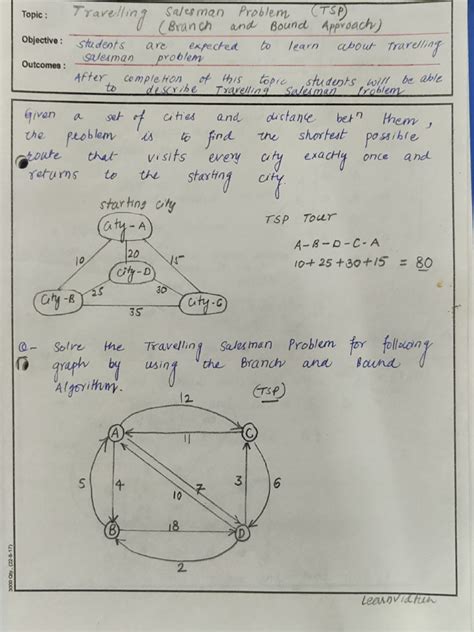 Topic : Travelling Salesman Problem (TSP)
(Branch and Bound Approach)
Objective : students are expected to learn about Travelling
salesman problem
Outcomes : After completion of this topic students will be able
to describe Travelling Salesman Problem
Given a set of cities and distance betn them,
the problem is to find the shortest possible
route that visits every city exactly once and
returns to the starting city.
starting city
City-A
TSP TOUR
A-B-D-C-A
10+25+30+15 = 80
10
20
15
City-D
25
30
City-B
City-C
35
Q- Solve the Travelling Salesman Problem for following
graph by using the Branch and Bound
Algorithm.
(TSP)
12
A
C
11
5
4
7
10
3
6
B
18
D
2